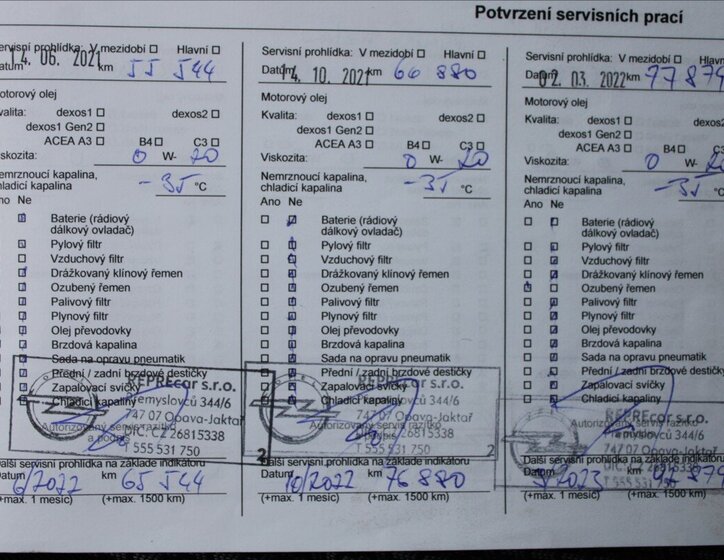 Potvrzení servisních prací
Servisní prohlídka: V mezidobí Hlavní
Datum 14. 06. 2021 km 55 544
Motorový olej
Kvalita: dexos1 dexos2
dexos1 Gen2
ACEA A3 B4 C3
Viskozita: 0 W- 20
Nemrznoucí kapalina,
chladicí kapalina -35 °C
Ano Ne
Baterie (rádiový
dálkový ovladač)
Pylový filtr
Vzduchový filtr
Drážkovaný klínový řemen
Ozubený řemen
Palivový filtr
Plynový filtr
Olej převodovky
Brzdová kapalina
Sada na opravu pneumatik
Přední / zadní brzdové destičky
Zapalovací svíčky
Chladicí kapaliny
REPRECor s.r.o.
Přemyslovců 344/6
747 07 Opava-Jaktař
Autorizovaný servis razítko
a podpis
DIČ: CZ 26815338
T 555 531 750
2
Další servisní prohlídka na základě indikátoru
Datum 6/2022 km 65 544
(+max. 1 měsíc) (+max. 1500 km)
Servisní prohlídka: V mezidobí Hlavní
Datum 14. 10. 2021 km 66 880
Motorový olej
Kvalita: dexos1 dexos2
dexos1 Gen2
ACEA A3 B4 C3
Viskozita: 0 W- 20
Nemrznoucí kapalina,
chladicí kapalina -35 °C
Ano Ne
Baterie (rádiový
dálkový ovladač)
Pylový filtr
Vzduchový filtr
Drážkovaný klínový řemen
Ozubený řemen
Palivový filtr
Plynový filtr
Olej převodovky
Brzdová kapalina
Sada na opravu pneumatik
Přední / zadní brzdové destičky
Zapalovací svíčky
Chladicí kapaliny
REPRECor s.r.o.
Přemyslovců 344/6
747 07 Opava-Jaktař
Autorizovaný servis razítko
26815338
T 555 531 750
2
Další servisní prohlídka na základě indikátoru
Datum 10/2022 km 76 880
(+max. 1 měsíc) (+max. 1500 km)
Servisní prohlídka: V mezidobí
Datum 02. 03. 2022 km
Motorový olej
Kvalita: dexos1
dexos1 Gen2
ACEA A3 B4 C3
Viskozita: 0 W-
Nemrznoucí kapalina,
chladicí kapalina -35 °C
Ano Ne
Baterie (rádiový
dálkový ovladač)
Pylový filtr
Vzduchový filtr
Drážkovaný klínový řemen
Ozubený řemen
Palivový filtr
Plynový filtr
Olej převodovky
Brzdová kapalina
Sada na opravu pneumatik
Přední / zadní brzdové destičky
Zapalovací svíčky
Chladicí kapaliny
REPRECor s.r.o.
Autorizovaný servis razítko
Přemyslovců 344/6
747 07 Opava-Jaktař
26815338
T 555 531 750
Další servisní prohlídka na základě indikátoru
Datum km
(+max. 1 měsíc) (+max. 1500 km)